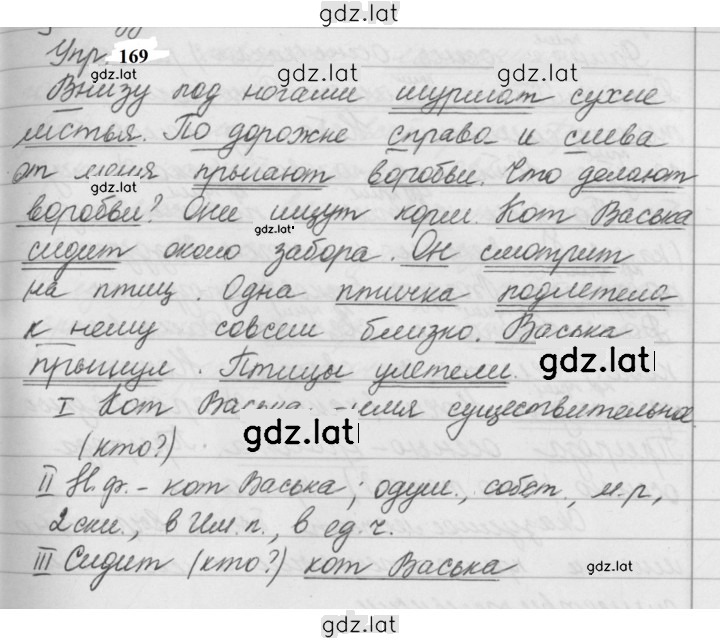 gdz.lat
Упр. 169
gdz.lat
gdz.lat
Внизу под ногами шуршат сухие
листья. По дорожке справа и слева
от меня прыгают воробьи. Что делают
gdz.lat
воробьи? Они ищут корм. Кот Васька
gdz.lat
сидит около забора. Он смотрит
на птиц. Одна птичка подлетела
к нему совсем близко. Васька
прыгнул. Птицы улетели. gdz.lat
I Кот Васька - имя существительное
(кто?) gdz.lat
II Н.ф. - кот Васька; одуш., собст., м.р,
2 скл., в Им.п., в ед.ч.
III Сидит (кто?) кот Васька gdz.lat
gdz.lat